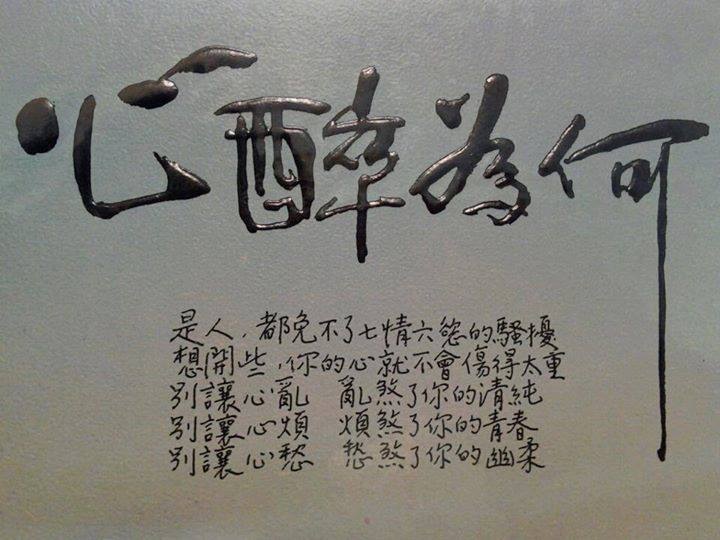 心醉為何
是人，都免不了七情六慾的騷擾
想開些，你的心就不會傷得太重
別讓心亂　亂煞了你的清純
別讓心煩　煩煞了你的青春
別讓心愁　愁煞了你的幽柔